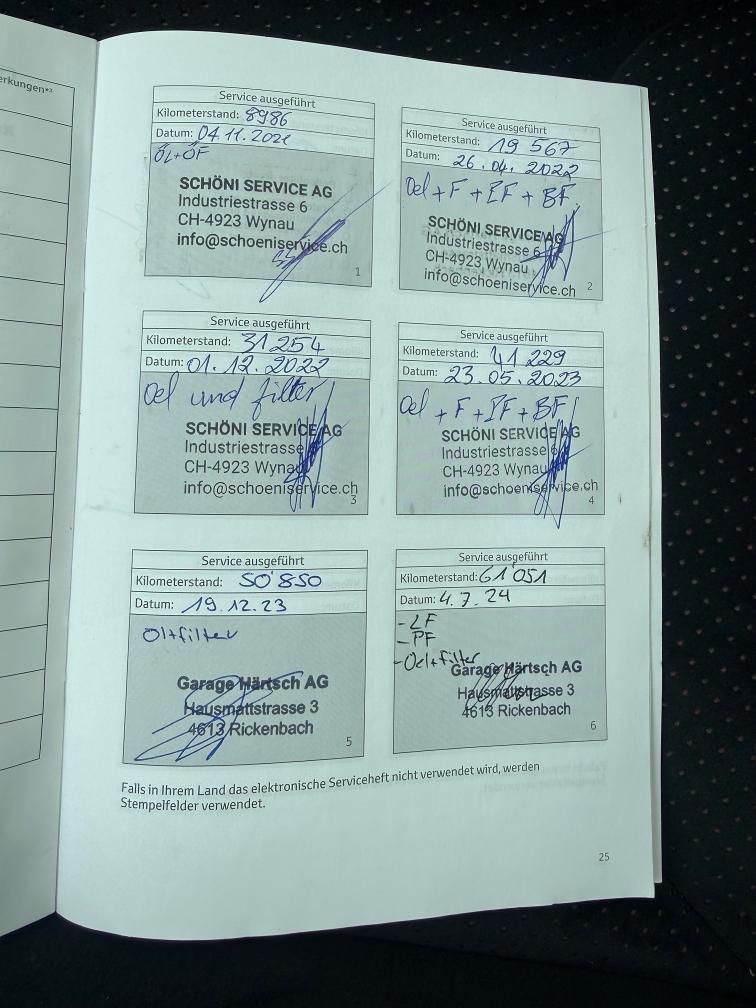 erkungen*²
Service ausgeführt
Kilometerstand: 8986
Datum: 04.11.2021
ÖL+ÖF
SCHÖNI SERVICE AG
Industriestrasse 6
CH-4923 Wynau
info@schoeniservice.ch
1
Service ausgeführt
Kilometerstand: 19 567
Datum: 26.04.2022
Oel + F + IF + BF
SCHÖNI SERVICE AG
Industriestrasse 6
CH-4923 Wynau
info@schoeniservice.ch
2
Service ausgeführt
Kilometerstand: 31254
Datum: 01.12.2022
Oel und filter
SCHÖNI SERVICE AG
Industriestrasse
CH-4923 Wynau
info@schoeniservice.ch
3
Service ausgeführt
Kilometerstand: 41 229
Datum: 23.05.2023
Oel + F + IF + BF
SCHÖNI SERVICE AG
Industriestrasse 6
CH-4923 Wynau
info@schoeniservice.ch
4
Service ausgeführt
Kilometerstand: 50'850
Datum: 19.12.23
Öl+filter
Garage Härtsch AG
Hausmattstrasse 3
4613 Rickenbach
5
Service ausgeführt
Kilometerstand: 61'051
Datum: 4.7.24
- LF
- PF
- Oel+filter
Garage Härtsch AG
Hausmattstrasse 3
4613 Rickenbach
6
Falls in Ihrem Land das elektronische Serviceheft nicht verwendet wird, werden
Stempelfelder verwendet.
25